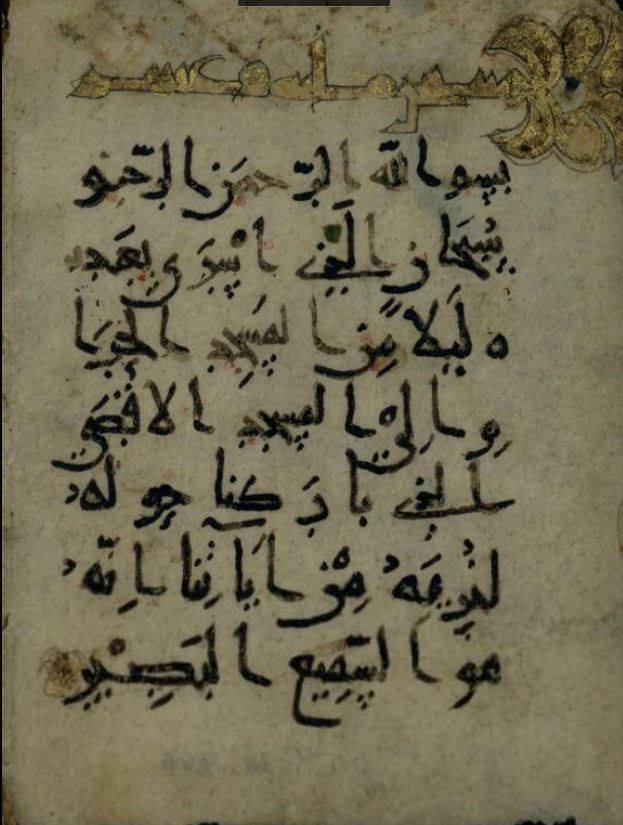 مائة وعشر
بِسمِ اللّه الرّحمَنِ الرّحيم
سُبحَان الَّذِي اسْرَى بِعَبد
ه لَيلًا مِّن المَسجِد الحَرَا
مِ الِى المَسجِد الاقْصَى
الَّذِي بَارَكنا حولَهُ
لنُرِيَهُ مِنْ آيَاتِنا اِنّهُ
هو السَّمِيع البَصِيرُ